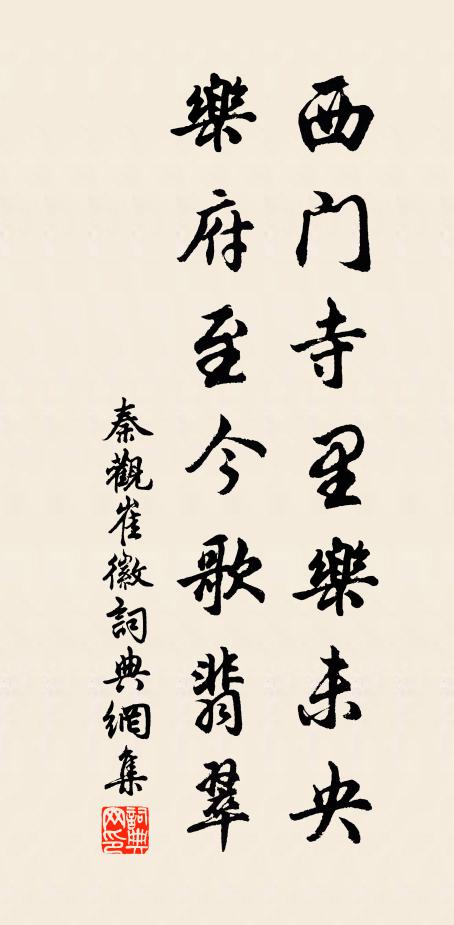 西门寺里樂未央
樂府至今歌翡翠
秦觀崔徽詞典網集
詞典网印